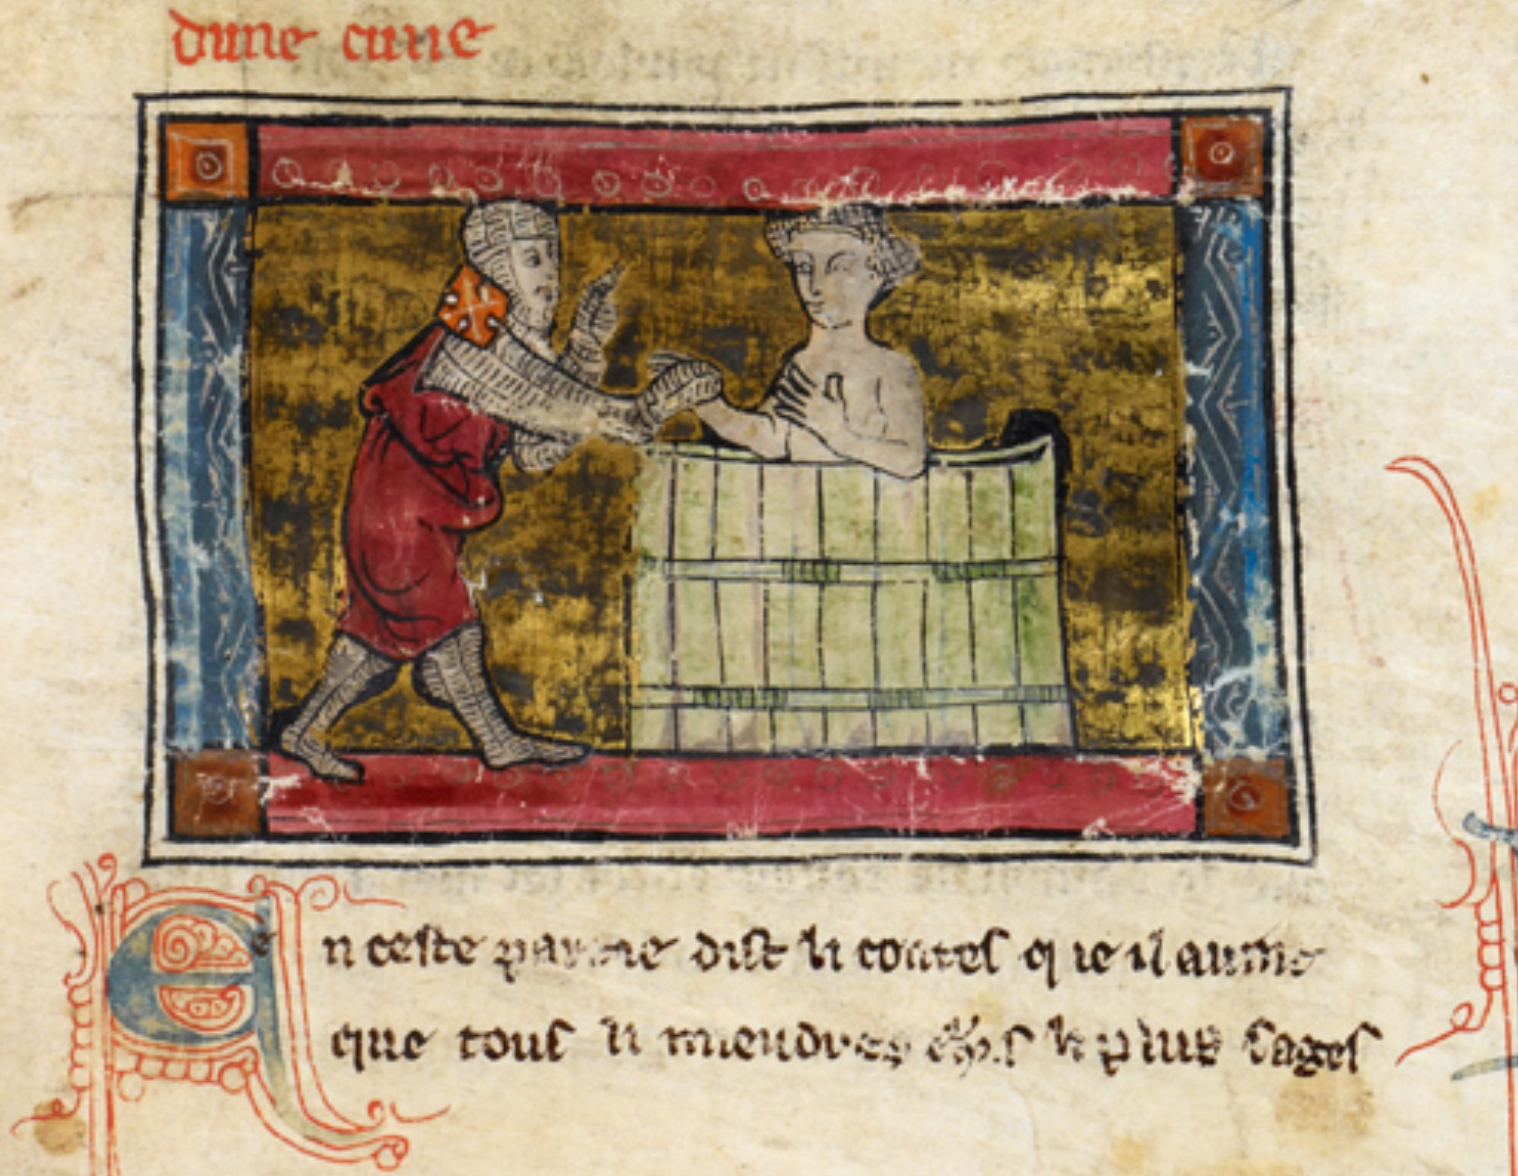 dune cuue
En ceste partie dist li contes que il
que tous li miendres li plus sages